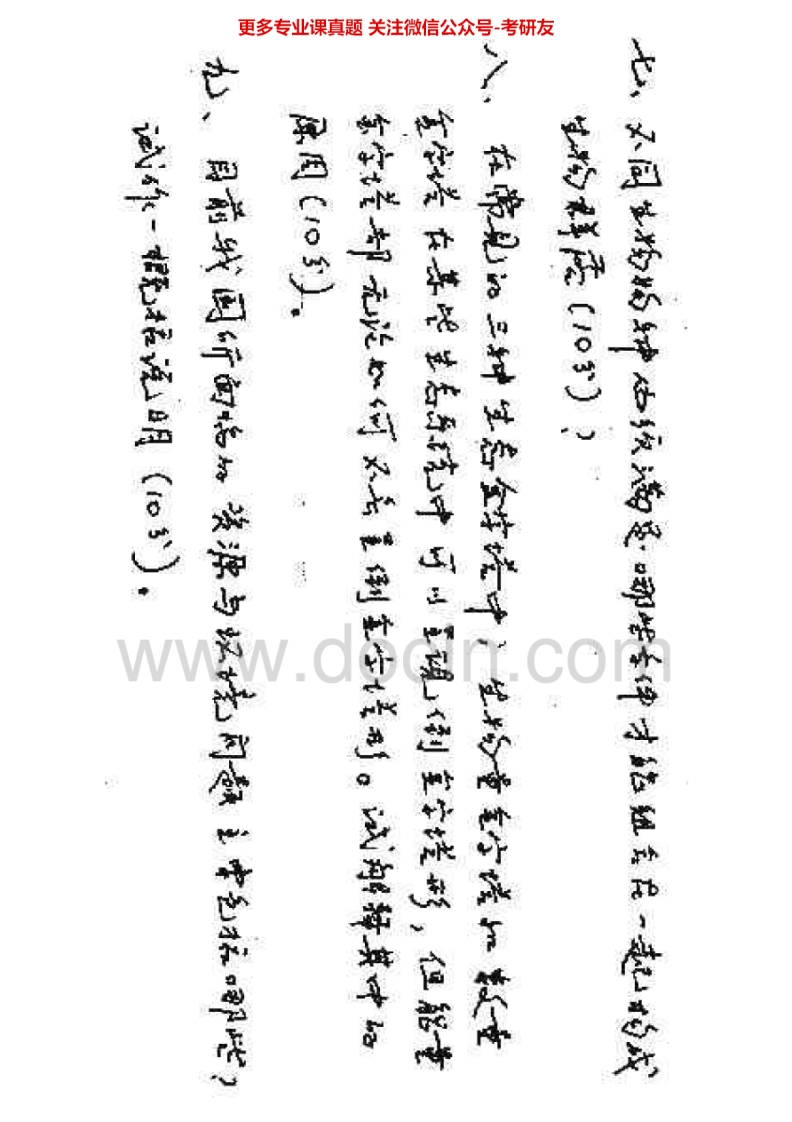 更多专业课真题 关注微信公众号-考研友
七、不同生物物种必须满足哪些条件才能组合在一起形成
生物群落(10分)?
八、在常见的三种生态金字塔中,生物量金字塔和数量
金字塔在某些生态系统中可以呈现倒金字塔形,但能量
金字塔却无论如何不会呈倒金字塔形。试解释其中的
原因(10分)。
九、目前我国所面临的资源与环境问题主要包括哪些?
试作一概括说明(10分)。
www.docin.com